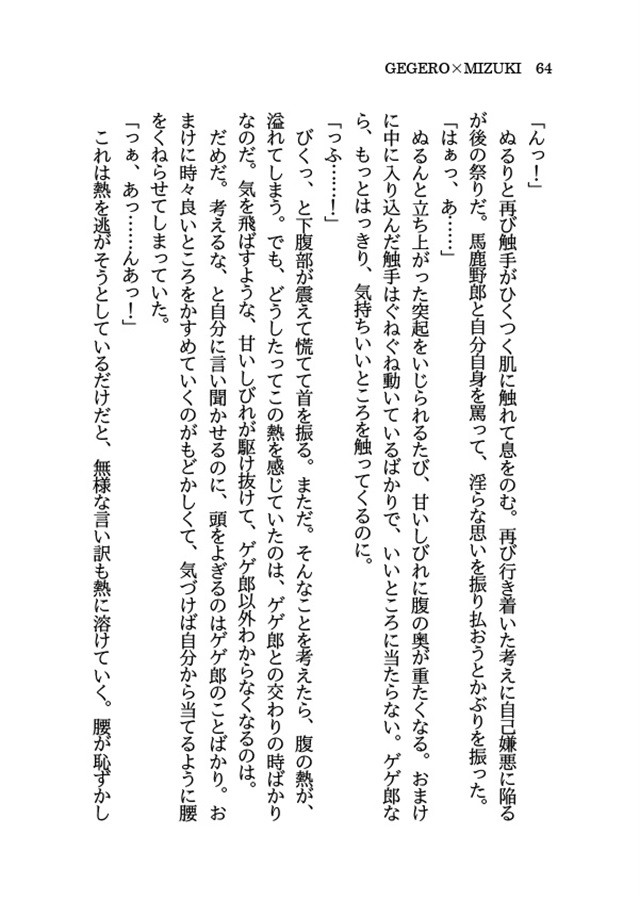 GEGERO×MIZUKI 64
「んっ！」
　ぬるりと再び触手がひくつく肌に触れて息をのむ。再び行き着いた考えに自己嫌悪に陥る
が後の祭りだ。馬鹿野郎と自分自身を罵って、淫らな思いを振り払おうとかぶりを振った。
「はぁっ、あ……」
　ぬるんと立ち上がった突起をいじられるたび、甘いしびれに腹の奥が重たくなる。おまけ
に中に入り込んだ触手はぐねぐね動いているばかりで、いいところに当たらない。ゲゲ郎な
ら、もっとはっきり、気持ちいいところを触ってくるのに。
「っふ……！」
　びくっ、と下腹部が震えて慌てて首を振る。まただ。そんなことを考えたら、腹の熱が、
溢れてしまう。でも、どうしたってこの熱を感じていたのは、ゲゲ郎との交わりの時ばかり
なのだ。気を飛ばすような、甘いしびれが駆け抜けて、ゲゲ郎以外わからなくなるのは。
　だめだ。考えるな、と自分に言い聞かせるのに、頭をよぎるのはゲゲ郎のことばかり。お
まけに時々良いところをかすめていくのがもどかしくて、気づけば自分から当てるように腰
をくねらせてしまっていた。
「っぁ、あっ……んあっ！」
　これは熱を逃がそうとしているだけだと、無様な言い訳も熱に溶けていく。腰が恥ずかし